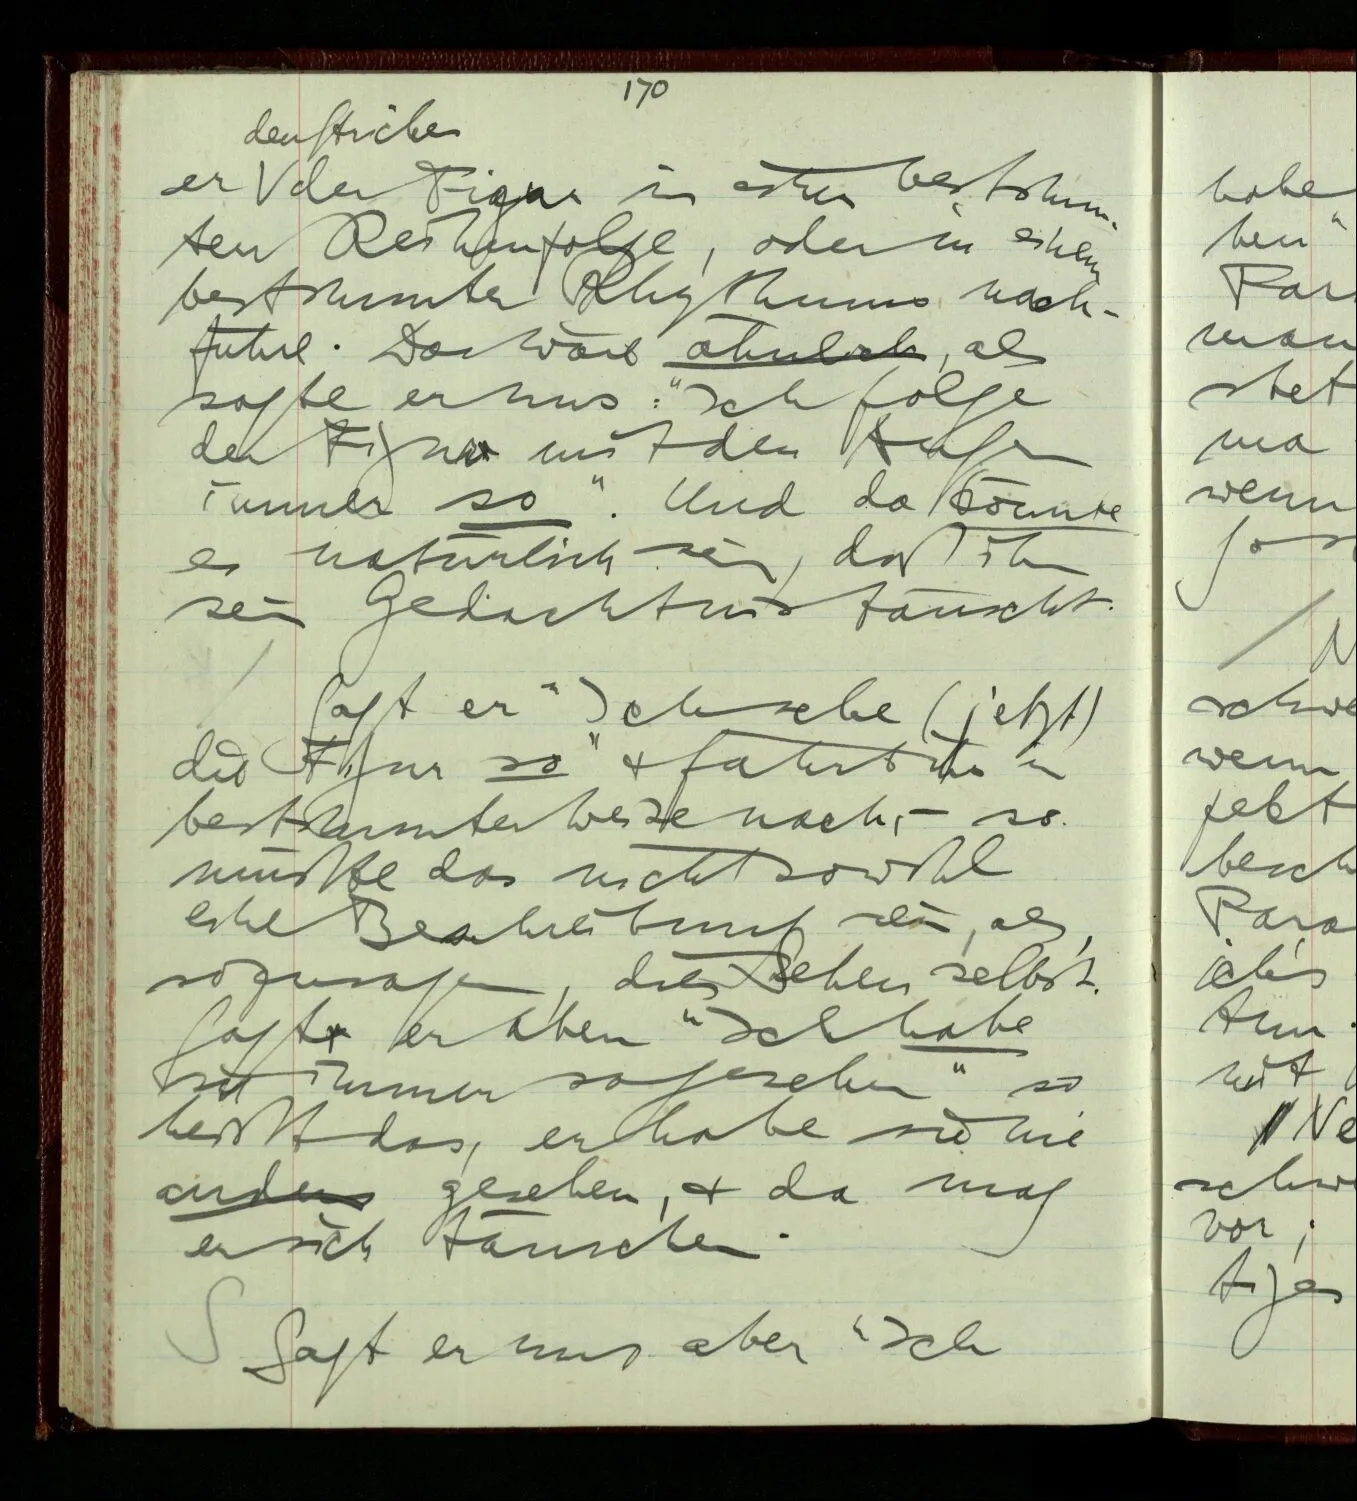 170
den Strichen
er V der Figur in einer bestimm-
ten Reihenfolge, oder in einem
bestimmten Rhythmus nach-
führe. Das wäre ähnlich, als
sagte er uns: "Ich folge
der Figur mit den Augen
immer so". Und da könnte
es natürlich sein, daß ihn
sein Gedächtnis täuscht.
/ Sagt er "Ich sehe (jetzt)
die Figur so" & fährt ihr in
bestimmter Weise nach, – so
müßte das nicht sowohl
eine Beschreibung sein, als,
sozusagen, dies Sehen selbst.
Sagt er aber "Ich habe
sie immer so gesehen" so
heißt das, er habe sie nie
anders gesehen, & da mag
er sich täuschen.
S Sagt er uns aber "Ich
habe
ben"
Par
man
stet
ma
wenn
/ N
schwe
wenn
jekt
besch
Para
ich's
tun.
mit
// Ne
schwe
vor;
tiges